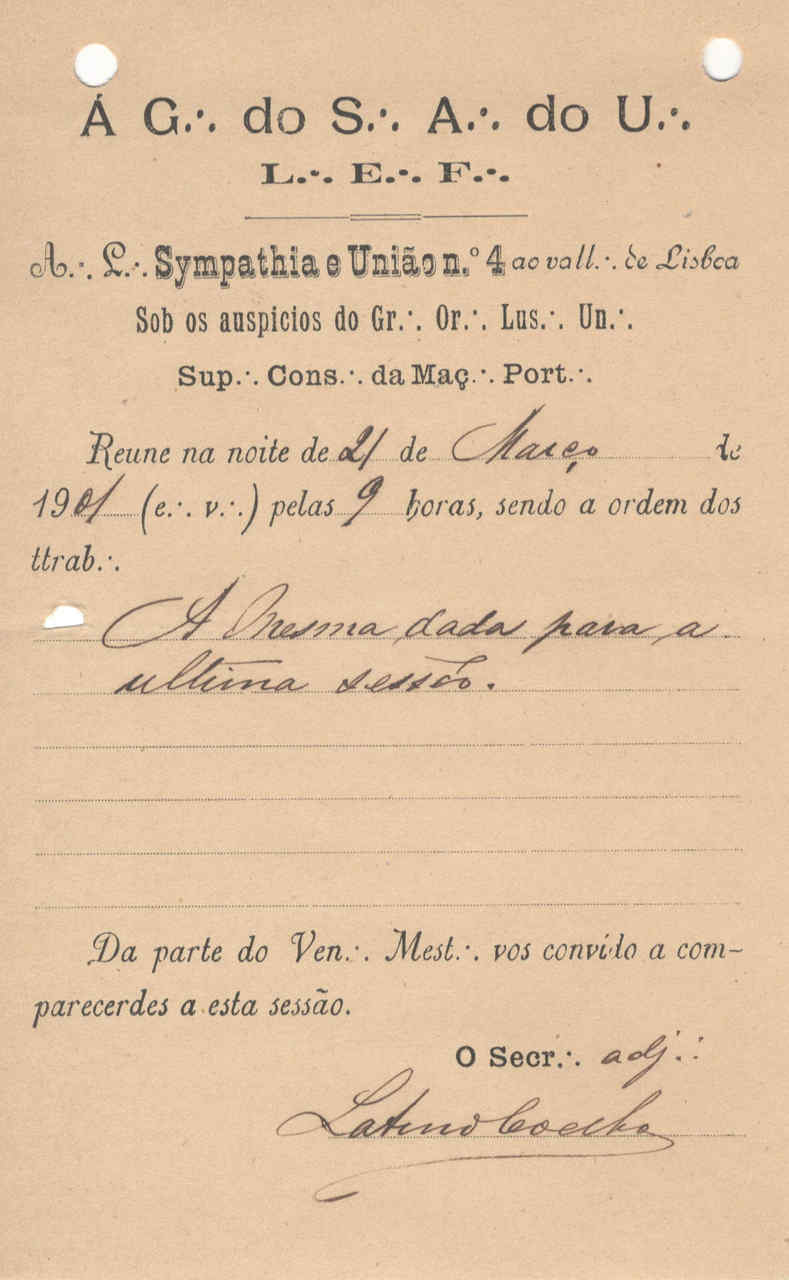 Á G.·. do S.·. A.·. do U.·.
L.·. E.·. F.·.
A.·. L.·. Sympathia e União n.º 4 ao vall.·. de Lisboa
Sob os auspicios do Gr.·. Or.·. Lus.·. Un.·.
Sup.·. Cons.·. da Maç.·. Port.·.
Reune na noite de 21 de Março de
1901 (e.·. v.·.) pelas 9 horas, sendo a ordem dos
ttrab.·.
A mesma dada para a
ultima sessão.
Da parte do Ven.·. Mest.·. vos convido a com-
parecerdes a esta sessão.
O Secr.·. adj.·.
Latino Coelho